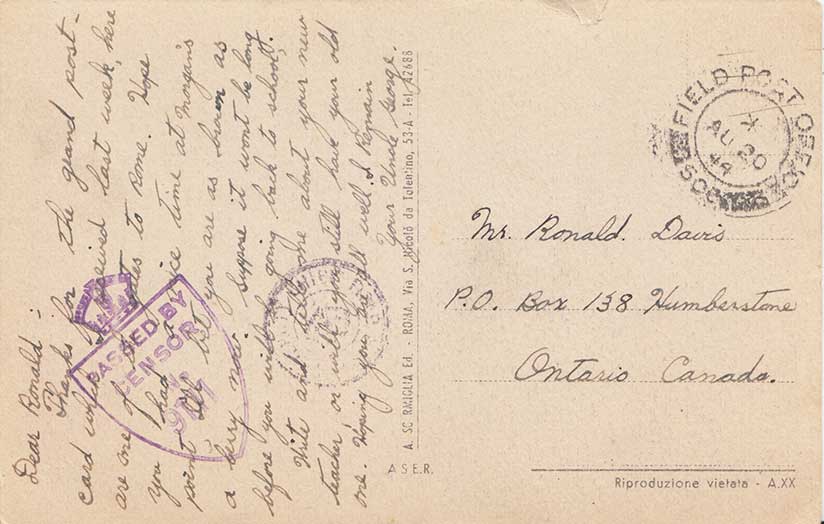 Dear Ronald :-
Thanks for the grand post-
card which I received last week, here
are one of to Rome. Hope
you had a nice time at Morgan's
point I'll bet you are as brown as
a berry now. Suppose it wont be long
before you will be going back to school,
Write and tell me about your new
teacher, or will you still have your old
one. Hoping you are all well. I Remain
Your Uncle George.
PASSED BY
CENSOR
A. SCARMIGLIA Ed. - ROMA, Via S. Nicolò da Tolentino, 53-A - Tel. 42688
A S E R.
FIELD POST OFFICE
AU 20
44
Mr. Ronald. Davis
P.O. Box 138 Humberstone
Ontario Canada.
Riproduzione vietata - A.XX